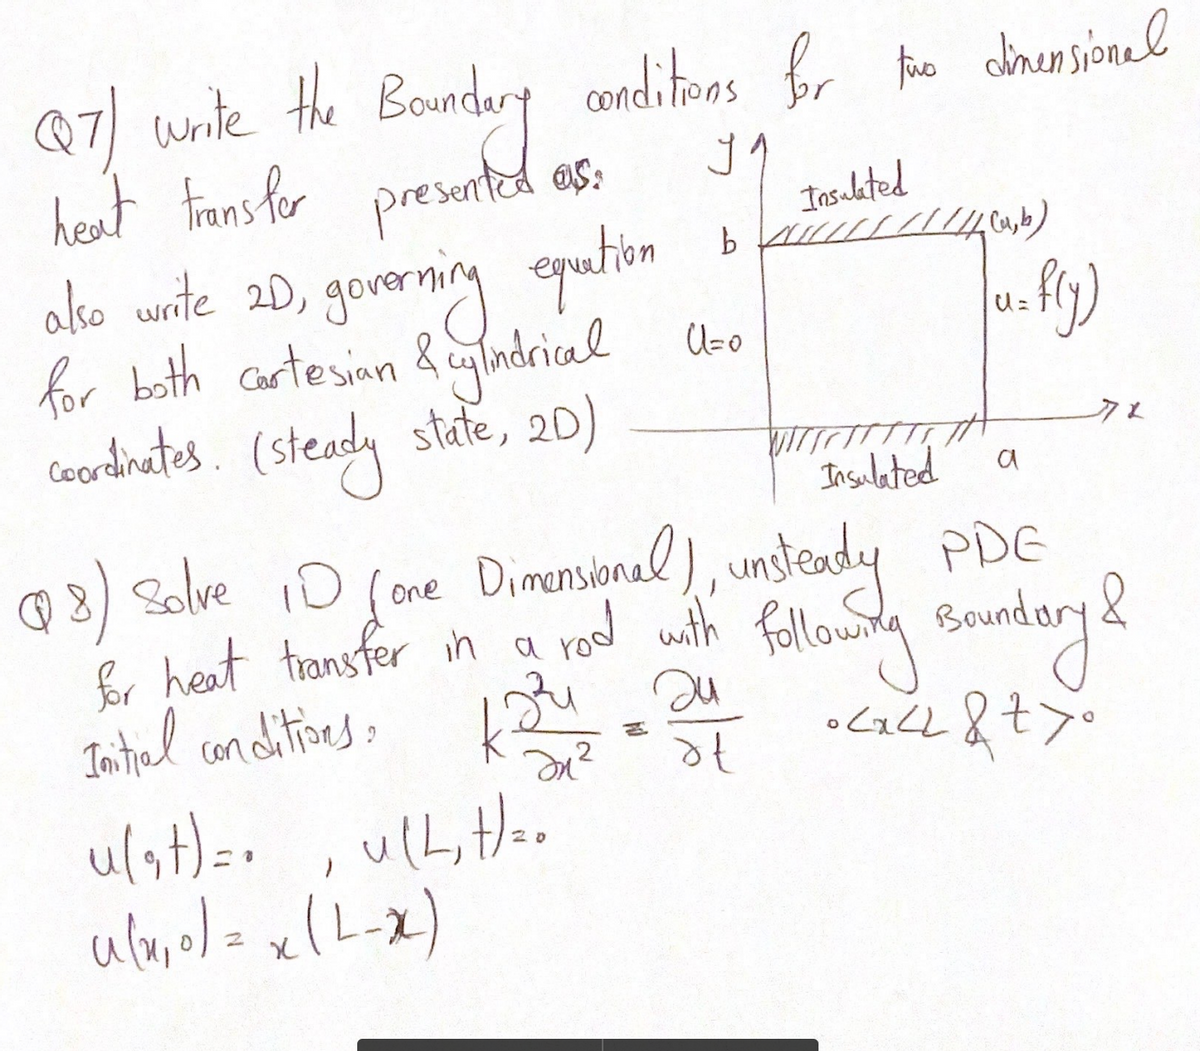 Q7) write the Boundary conditions for two dimensional
heat transfer presented as:
also write 2D, governing equation
for both cartesian & cylindrical
coordinates. (steady state, 2D)
y
Insulated
b
(a,b)
u=0
u=f(y)
x
Insulated
a
Q8) Solve 1D (one Dimensional), unsteady PDE
for heat transfer in a rod with following Boundary &
Initial conditions: k ∂²u/∂x² = ∂u/∂t 0<x<L & t>0
u(0,t)=0 , u(L,t)=0
u(x,0) = x(L-x)